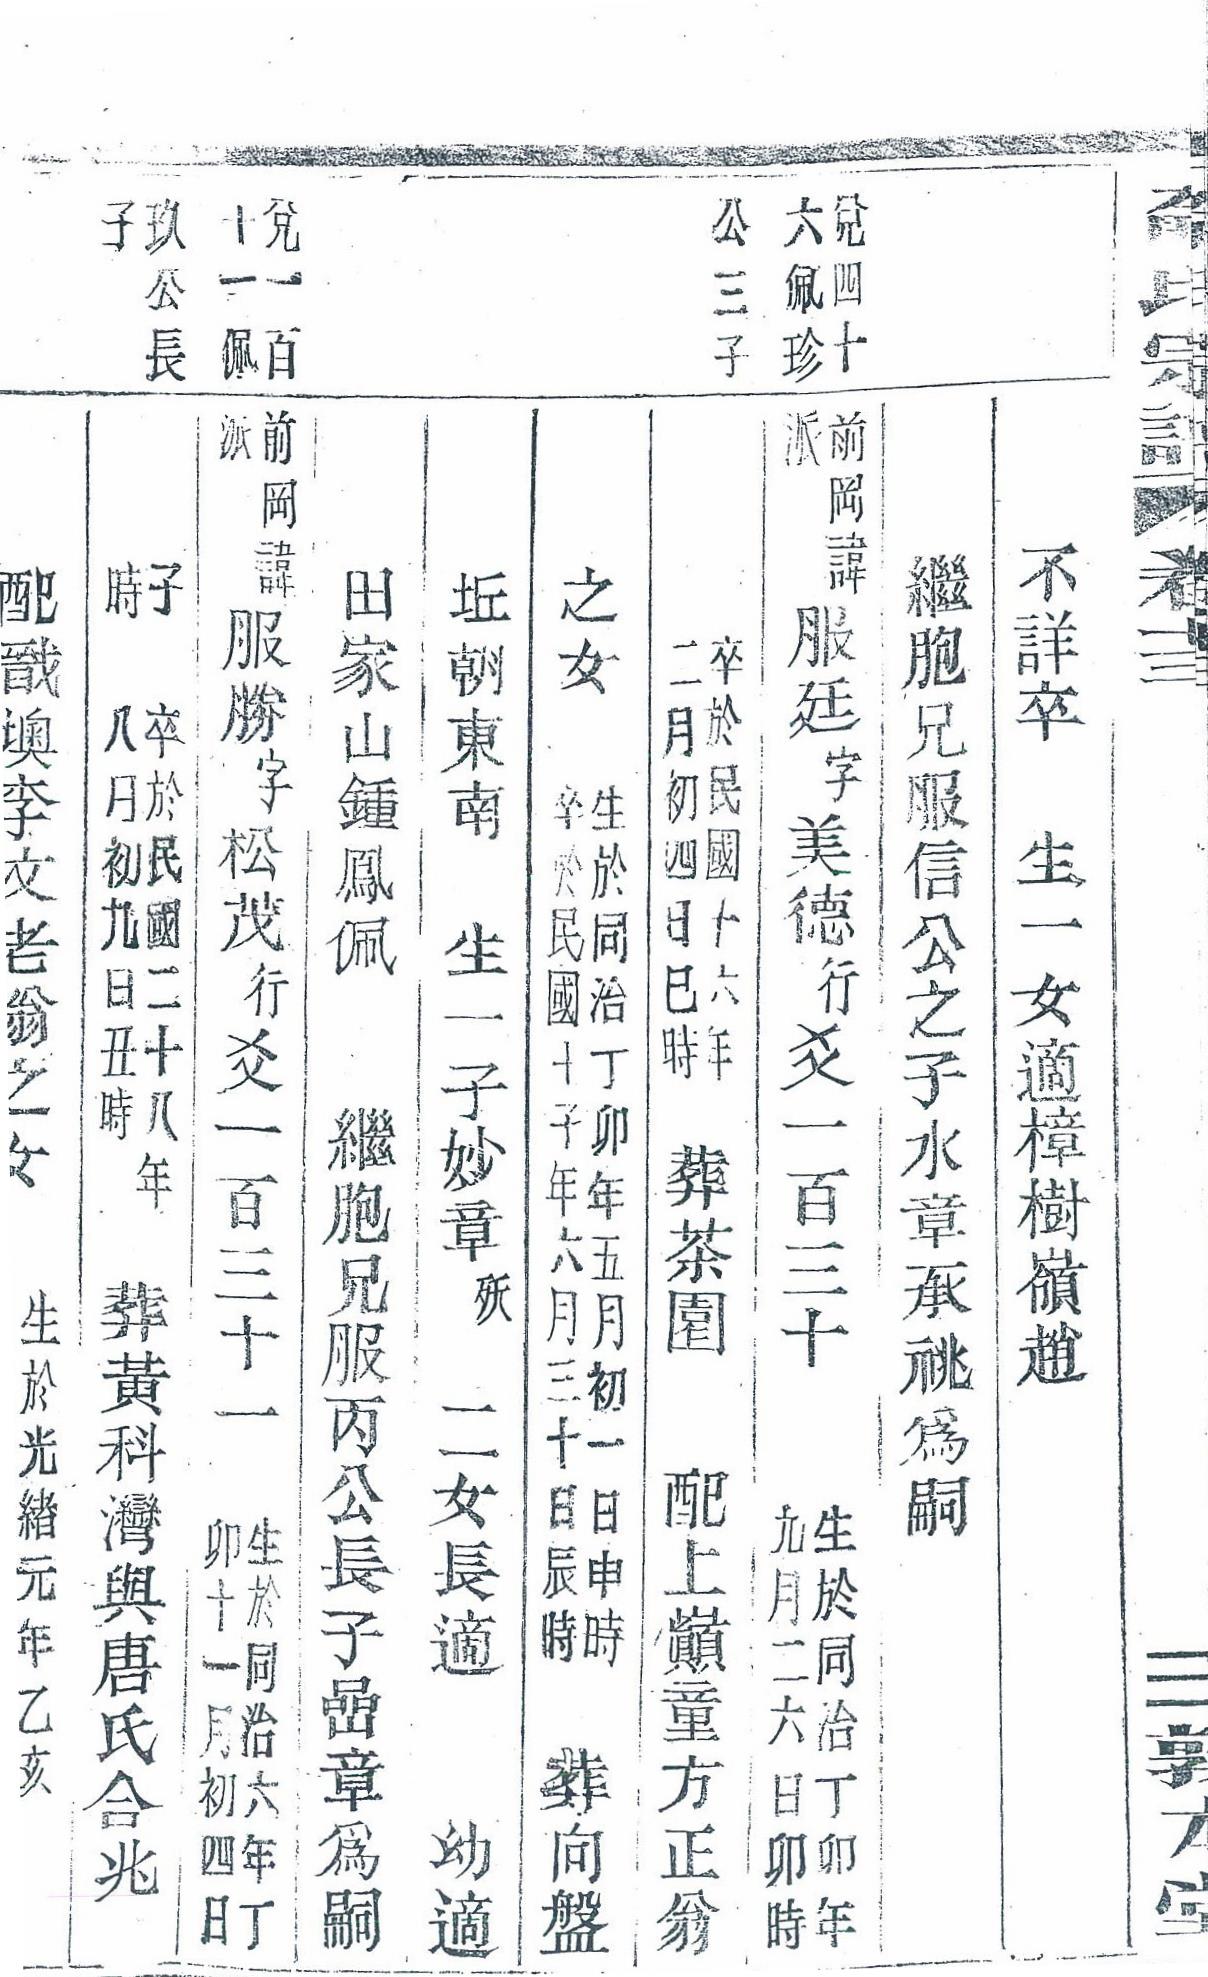 氏宗譜 卷三 三 敦
不詳卒 生一女適樟樹嶺趙
繼胞兄服信公之子水章承祧爲嗣
兌四十
六佩珍
公三子
前岡諱
派
服廷字美德行爻一百三十
生於同治丁卯年
九月二六日卯時
卒於民國十六年
二月初四日巳時
葬茶園 配上巔童方正翁
之女
生於同治丁卯年五月初一日申時
卒於民國十子年六月三十日辰時
葬向盤
坵朝東南 生一子妙章殀 二女長適 幼適
田家山鍾鳳佩 繼胞兄服丙公長子嵒章爲嗣
兌一百
十一佩
玖公長
子
前岡諱
派
服勝字松茂行爻一百三十一
生於同治六年丁
卯十一月初四日
子
時
卒於民國二十八年
八月初九日丑時
葬黃科灣與唐氏合兆
配戩墺李文老翁之女 生於光緒元年乙亥